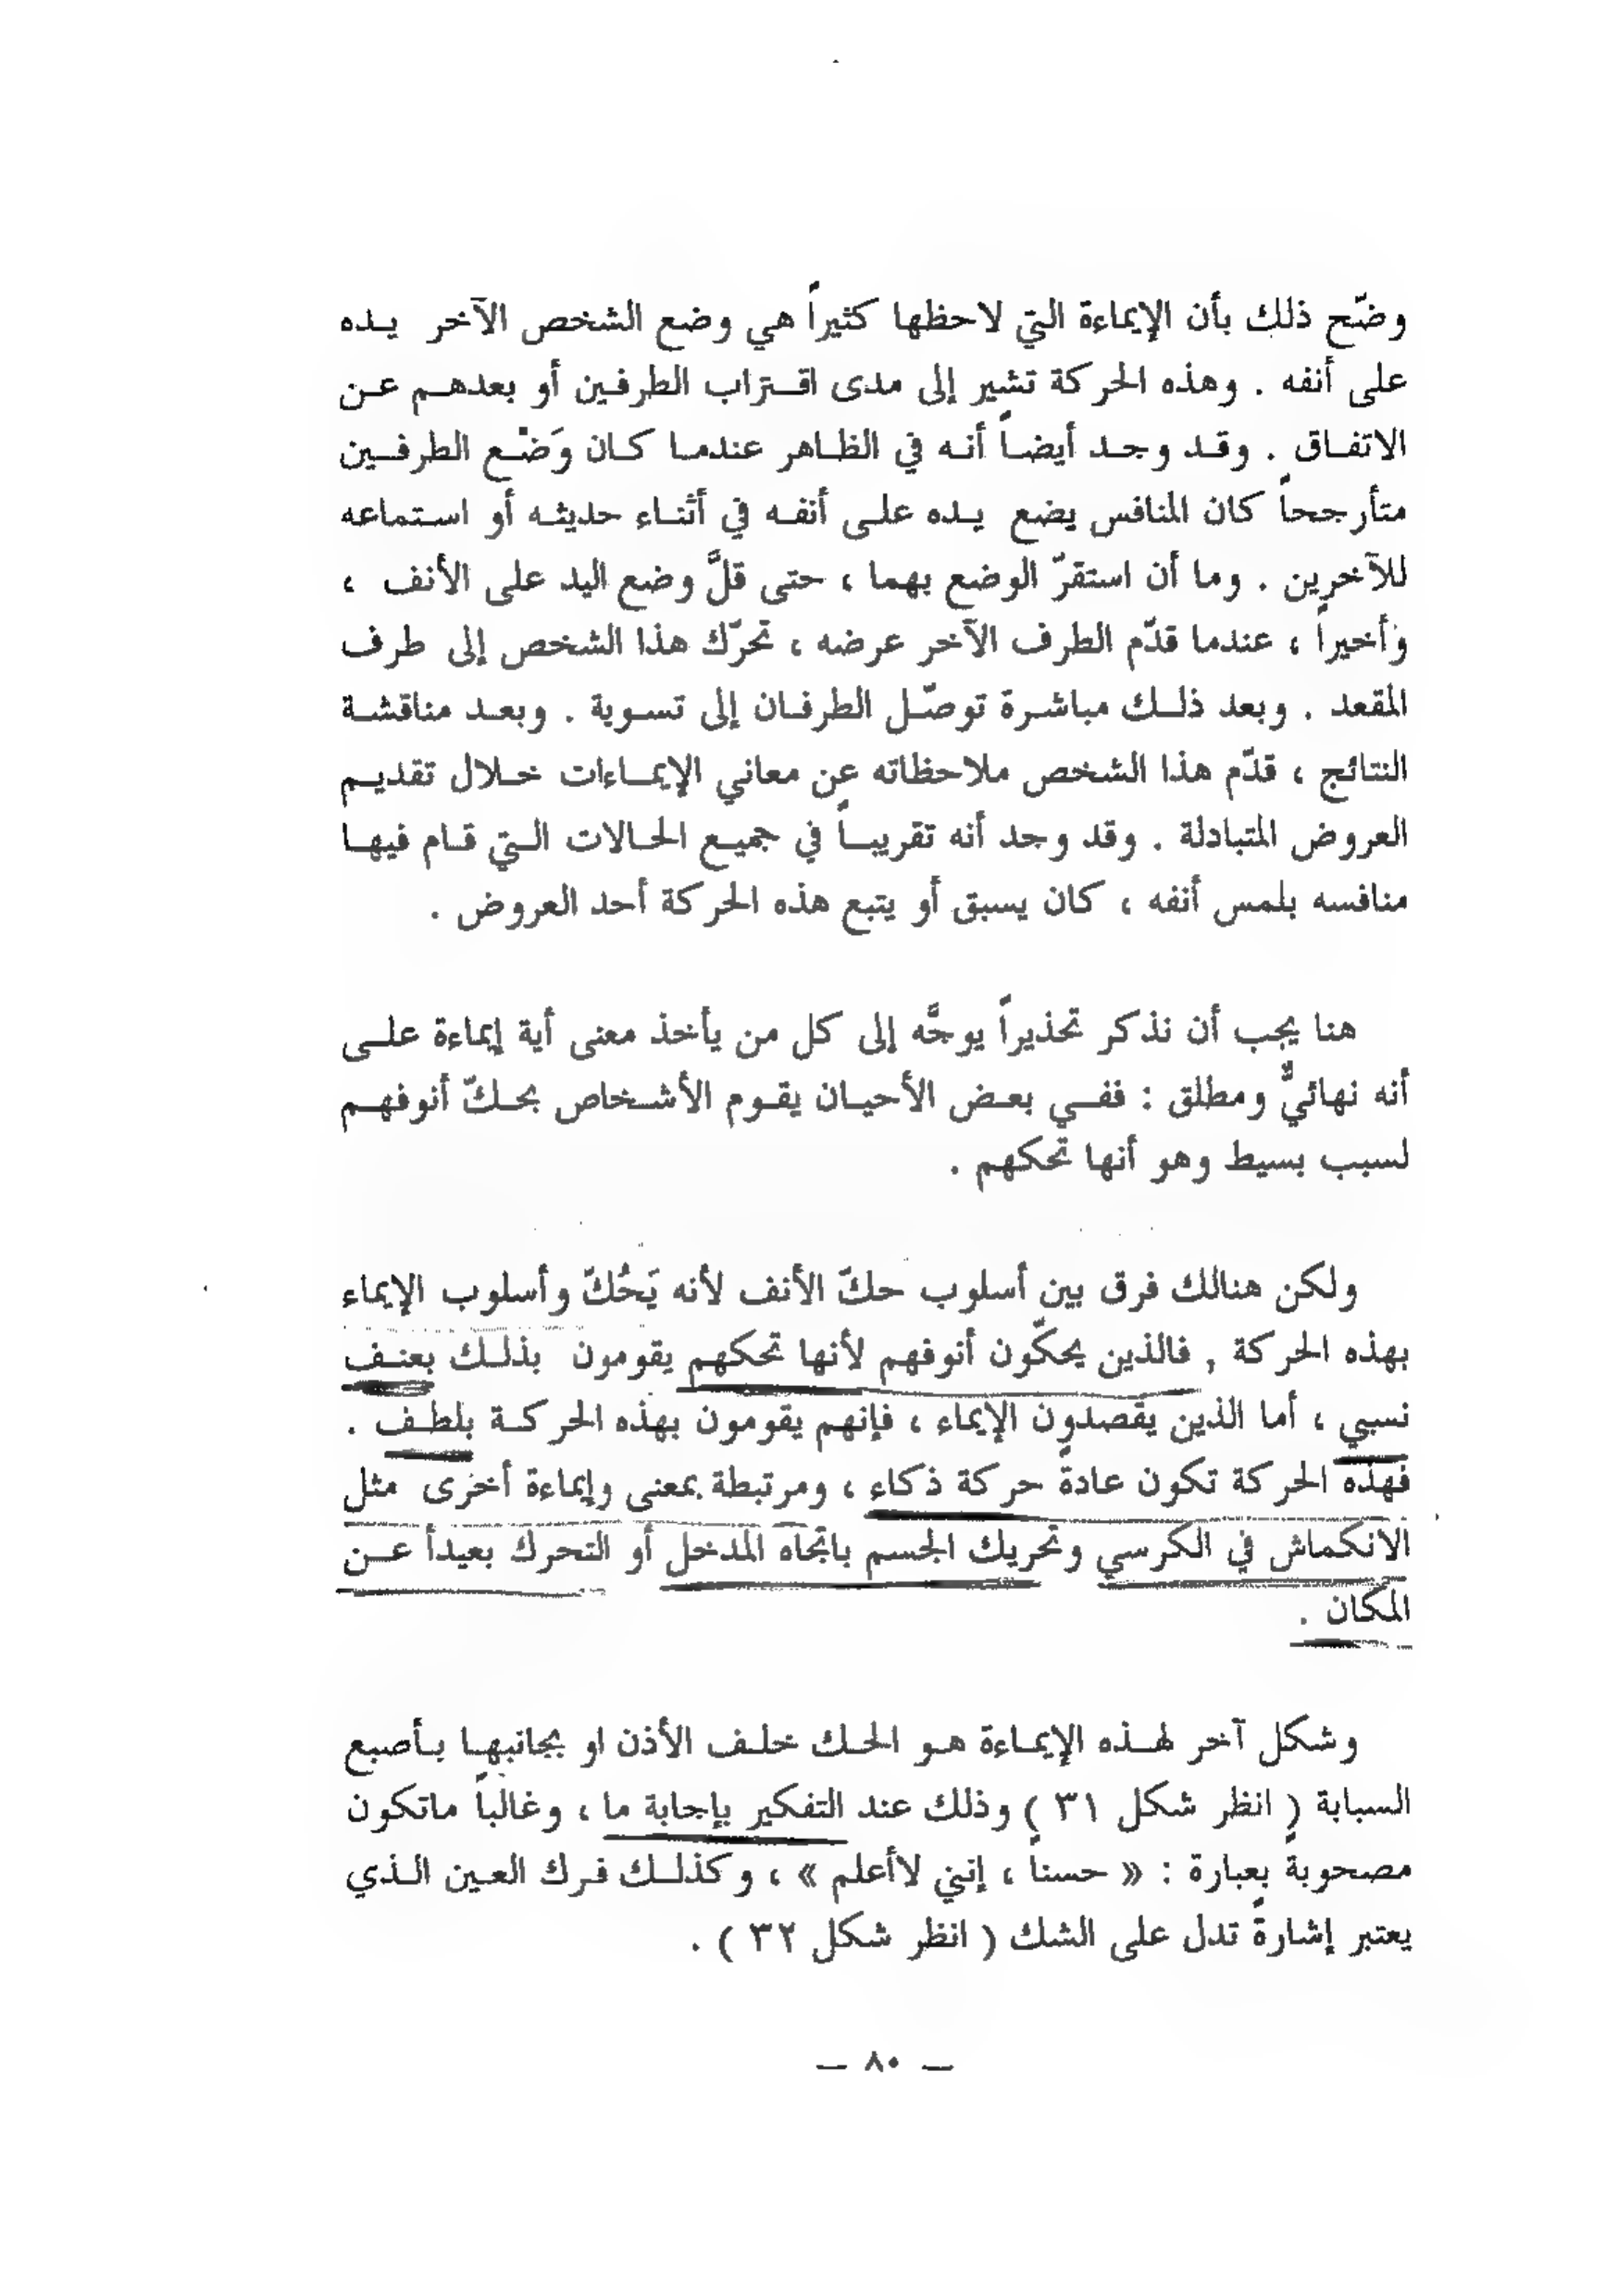 وضّح ذلك بأن الإيماءة التي لاحظها كثيراً هي وضع الشخص الآخر يده
على أنفه . وهذه الحركة تشير إلى مدى اقتراب الطرفين أو بعدهم عن
الاتفاق . وقد وجد أيضاً أنه في الظاهر عندما كان وَضْع الطرفين
متأرجحاً كان المنافس يضع يده على أنفه في أثناء حديثه أو استماعه
للآخرين . وما أن استقرّ الوضع بهما ، حتى قلَّ وضع اليد على الأنف ،
وأخيراً ، عندما قدّم الطرف الآخر عرضه ، تحرّك هذا الشخص إلى طرف
المقعد . وبعد ذلك مباشرة توصّل الطرفان إلى تسوية . وبعد مناقشة
النتائج ، قدّم هذا الشخص ملاحظاته عن معاني الإيماءات خلال تقديم
العروض المتبادلة . وقد وجد أنه تقريباً في جميع الحالات التي قام فيها
منافسه بلمس أنفه ، كان يسبق أو يتبع هذه الحركة أحد العروض .
هنا يجب أن نذكر تحذيراً يوجَّه إلى كل من يأخذ معنى أية إيماءة على
أنه نهائيٌّ ومطلق : ففي بعض الأحيان يقوم الأشخاص بحكّ أنوفهم
لسبب بسيط وهو أنها تحكهم .
ولكن هنالك فرق بين أسلوب حكّ الأنف لأنه يَحُكّ وأسلوب الإيماء
بهذه الحركة , فالذين يحكّون أنوفهم لأنها تحكهم يقومون بذلك بعنف
نسبي ، أما الذين يقصدون الإيماء ، فإنهم يقومون بهذه الحركة بلطف .
فهذه الحركة تكون عادةً حركة ذكاء ، ومرتبطة بمعنى وإيماءة أخرى مثل
الانكماش في الكرسي وتحريك الجسم باتجاه المدخل أو التحرك بعيداً عن
المكان .
وشكل آخر لهذه الإيماءة هو الحك خلف الأذن او بجانبها بأصبع
السبابة ( انظر شكل ٣١ ) وذلك عند التفكير بإجابة ما ، وغالباً ماتكون
مصحوبةً بعبارة : « حسناً ، إنني لاأعلم » ، وكذلك فرك العين الذي
يعتبر إشارةً تدل على الشك ( انظر شكل ٣٢ ) .
— ٨٠ —